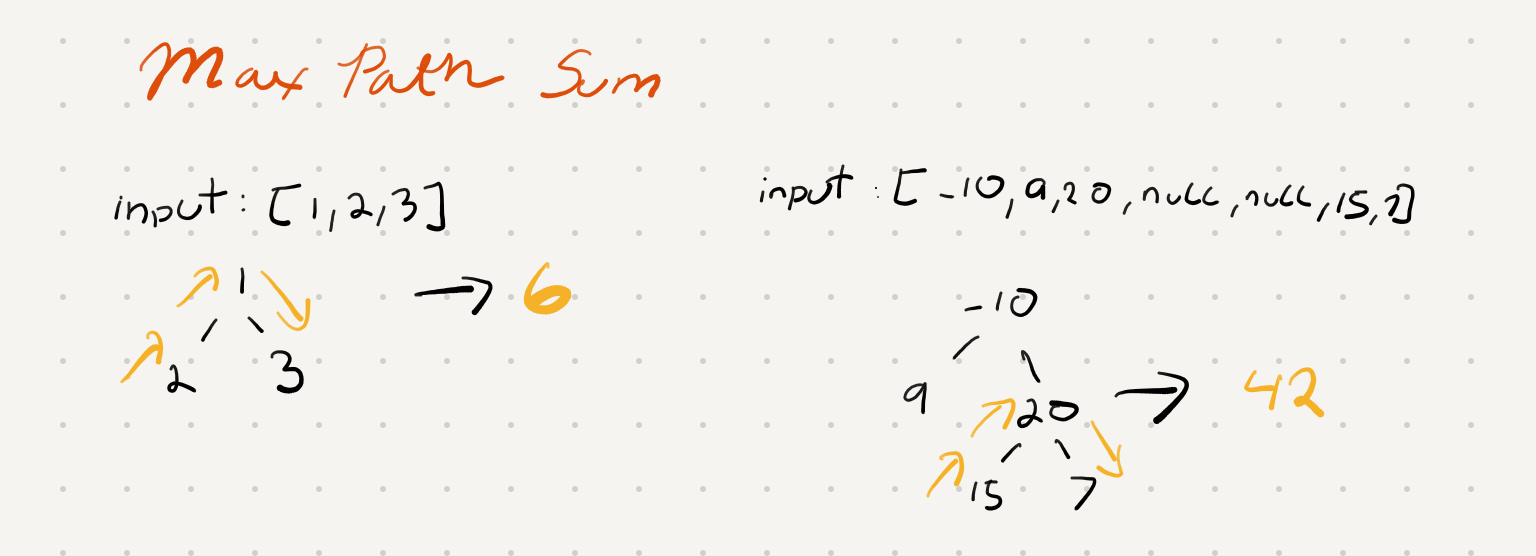 Max Path Sum
input: [1,2,3]
1
2 3
→ 6
input: [-10,9,20,null,null,15,7]
-10
9 20
15 7
→ 42